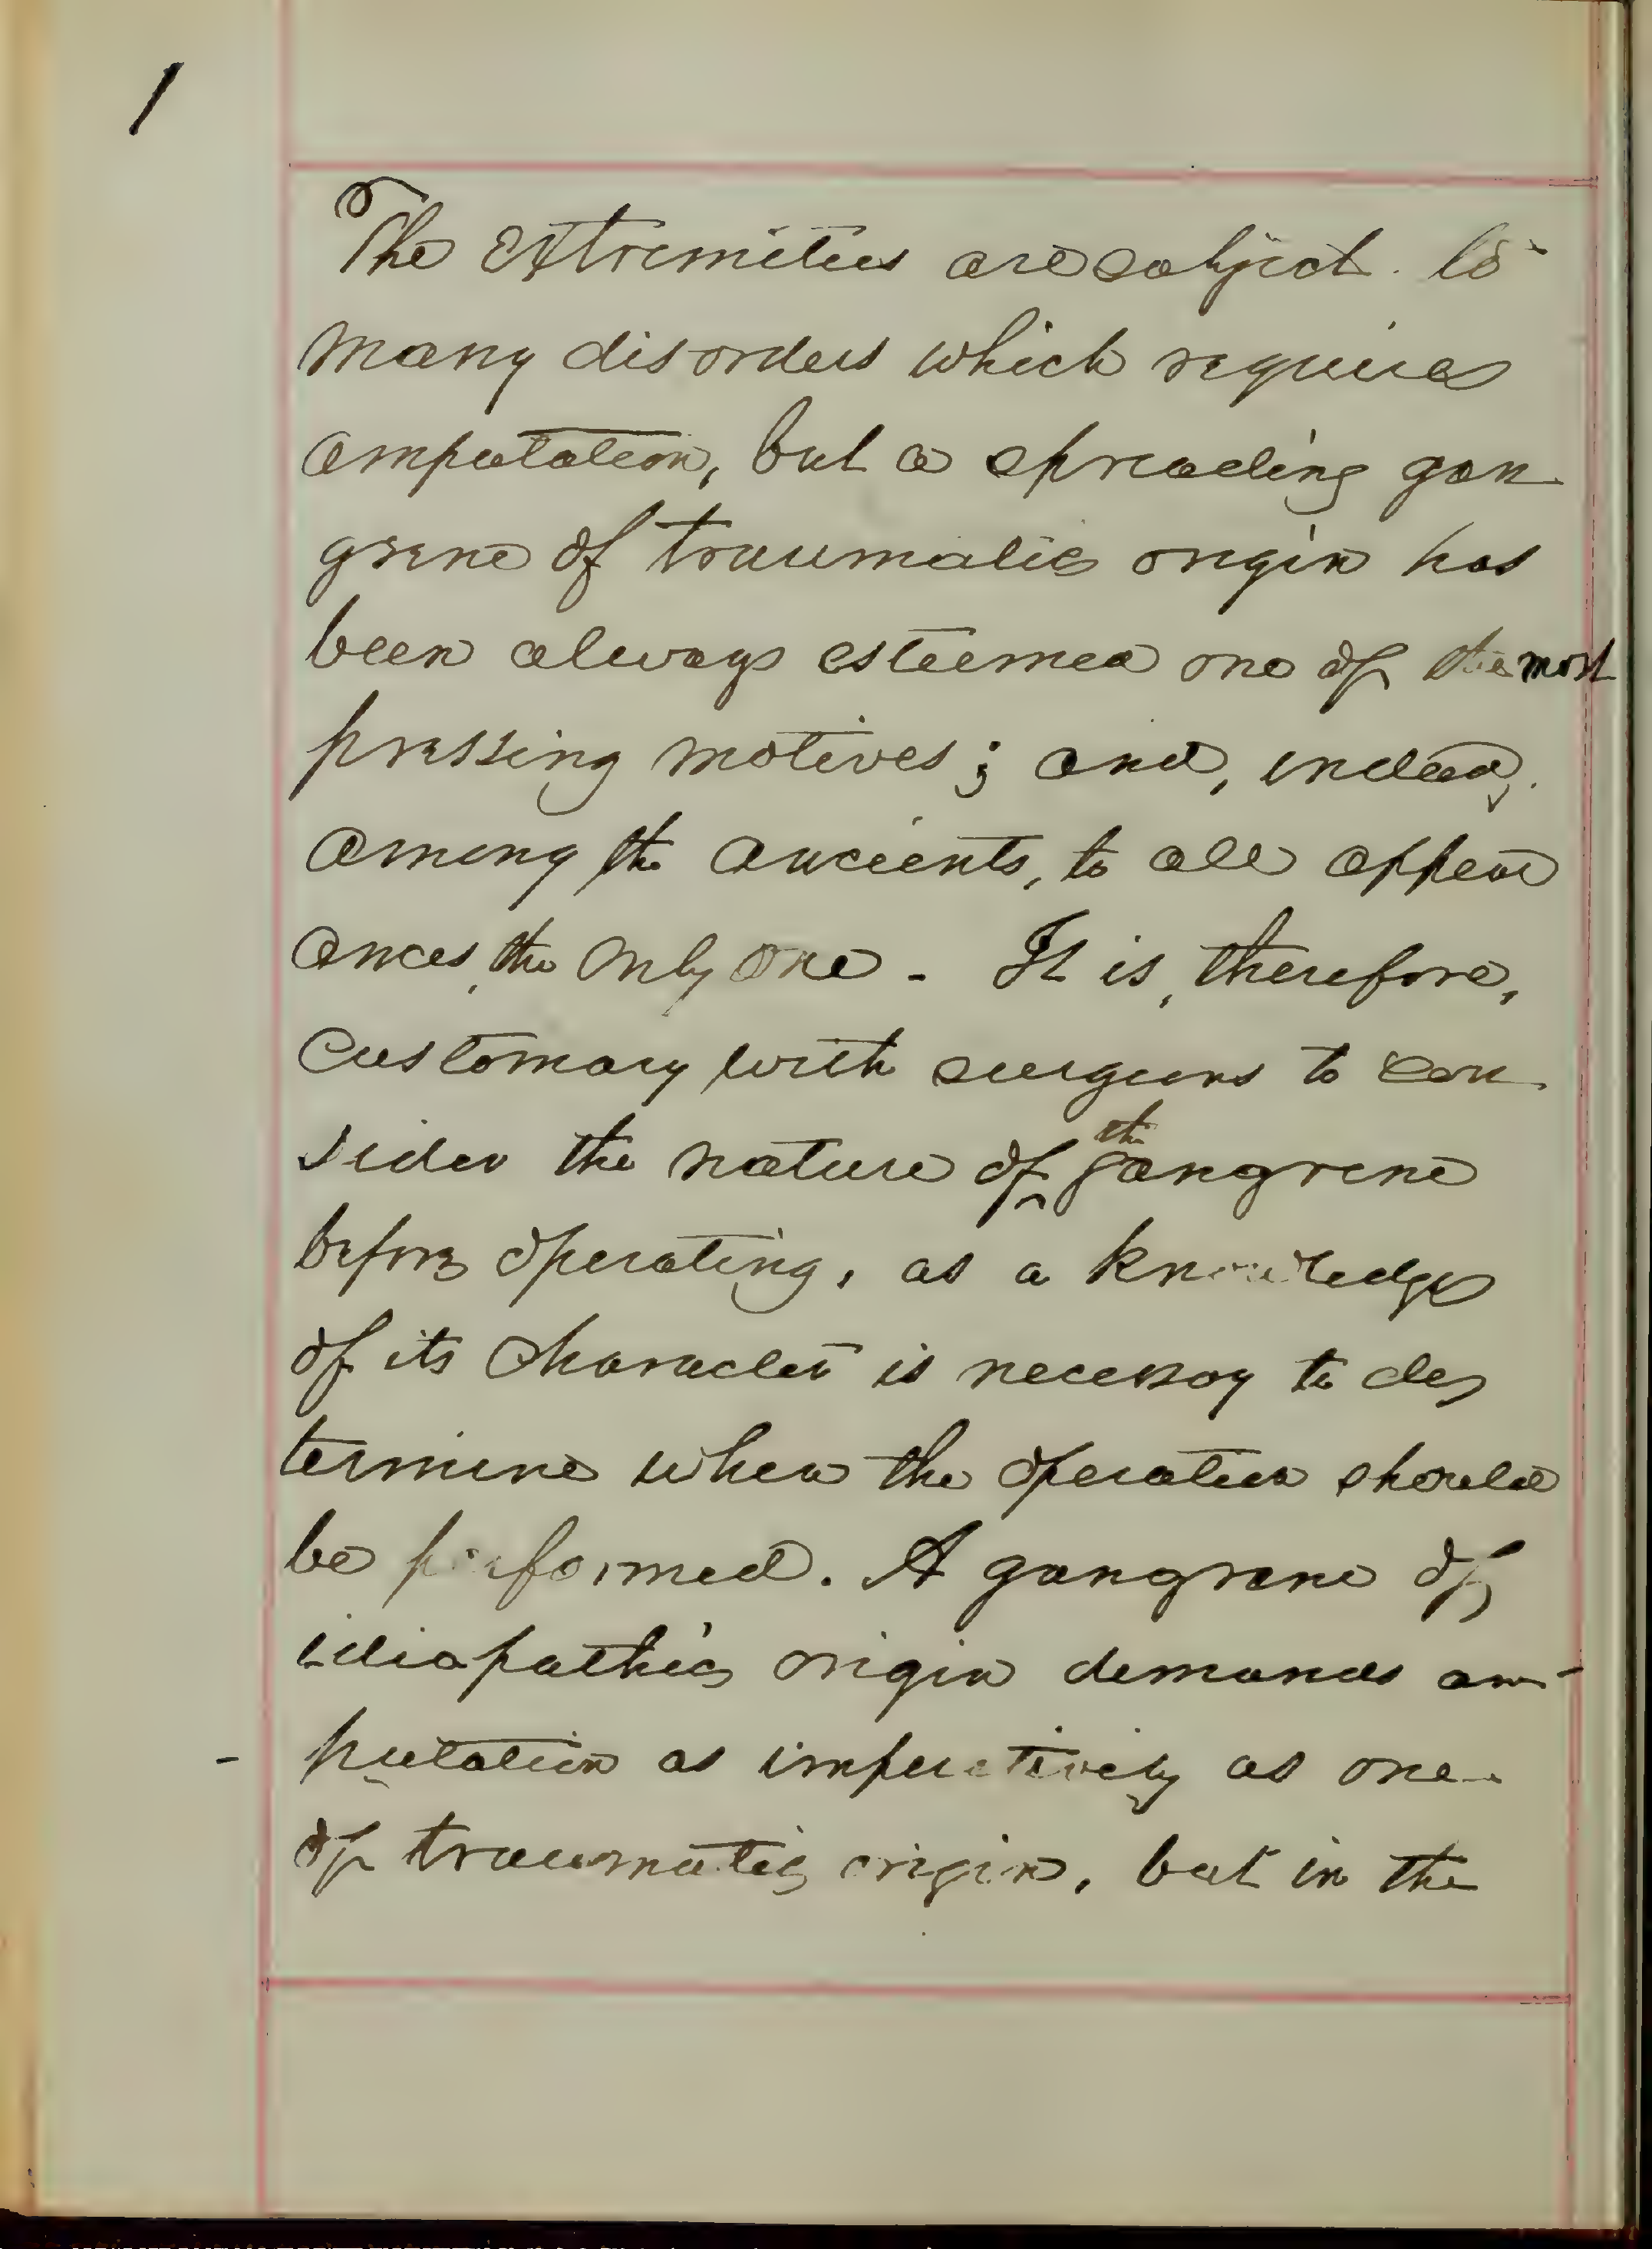 1
The extremities are subject to
many disorders which requires
amputation, but a spreading gan
grene of traumatic origin has
been always esteemed one of the most
pressing motives; and, indeed,
among the ancients, to all appear
ances, the only one. It is, therefore,
customary with surgeons to con
sider the nature of the gangrene
before operating, as a knowledge
of its character is necessary to de
termine when the operation should
be performed. A gangrene of
idiopathic origin demands am-
putation as imperatively as one
of traumatic origin, but in the